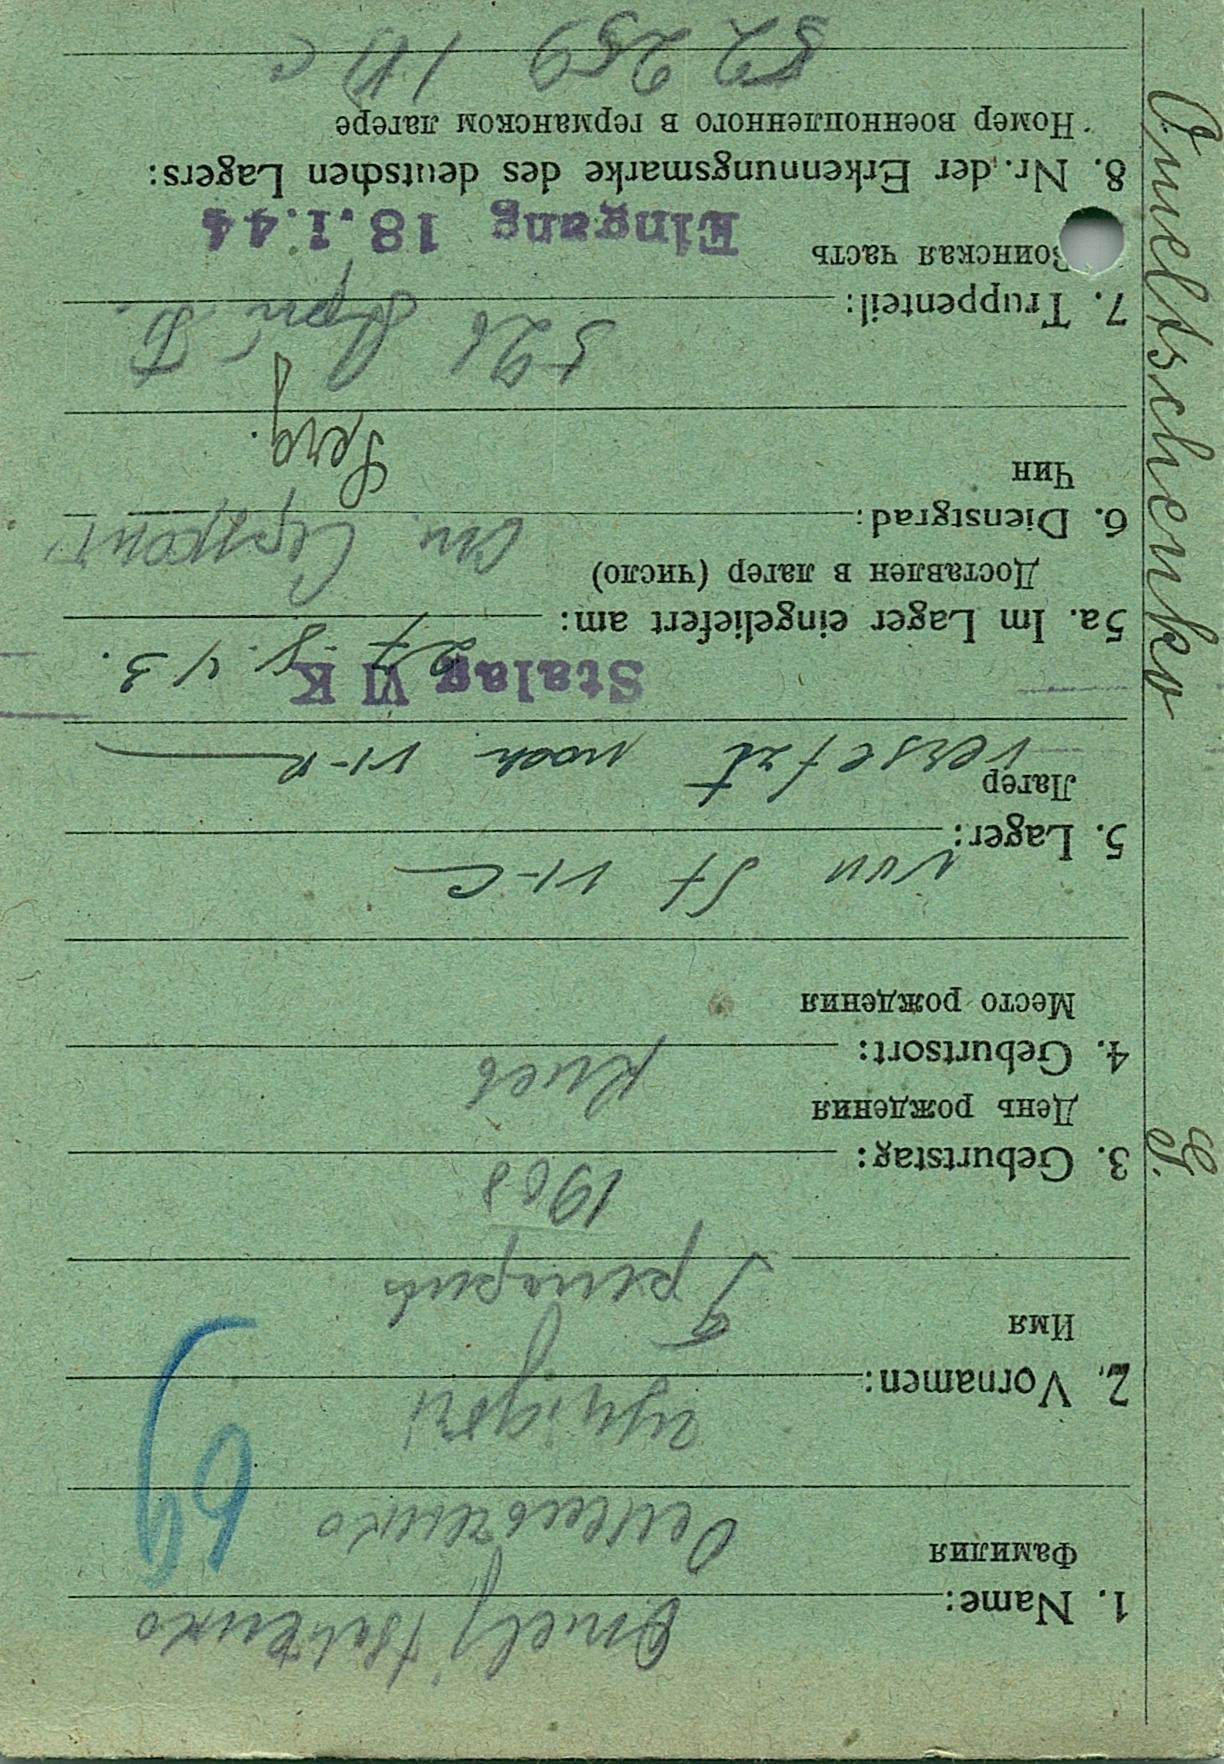 Omeltschenko G.
1. Name:
Фамилия
Омельченко
2. Vornamen:
Имя
Григорий
3. Geburtstag: 1908
День рождения
4. Geburtsort: Киев
Место рождения
von St VI-C
5. Lager:
Лагер
versetzt nach VI-K
Stalag VI K
27. 8. 43.
5a. Im Lager eingeliefert am:
Доставлен в лагер (число)
6. Dienstgrad: Сержант
Чин
Serg.
526
7. Truppenteil:
Воинская часть
Eingang 18.1.44
8. Nr. der Erkennungsmarke des deutschen Lagers:
Номер военнопленного в германском лагере
52 259
69